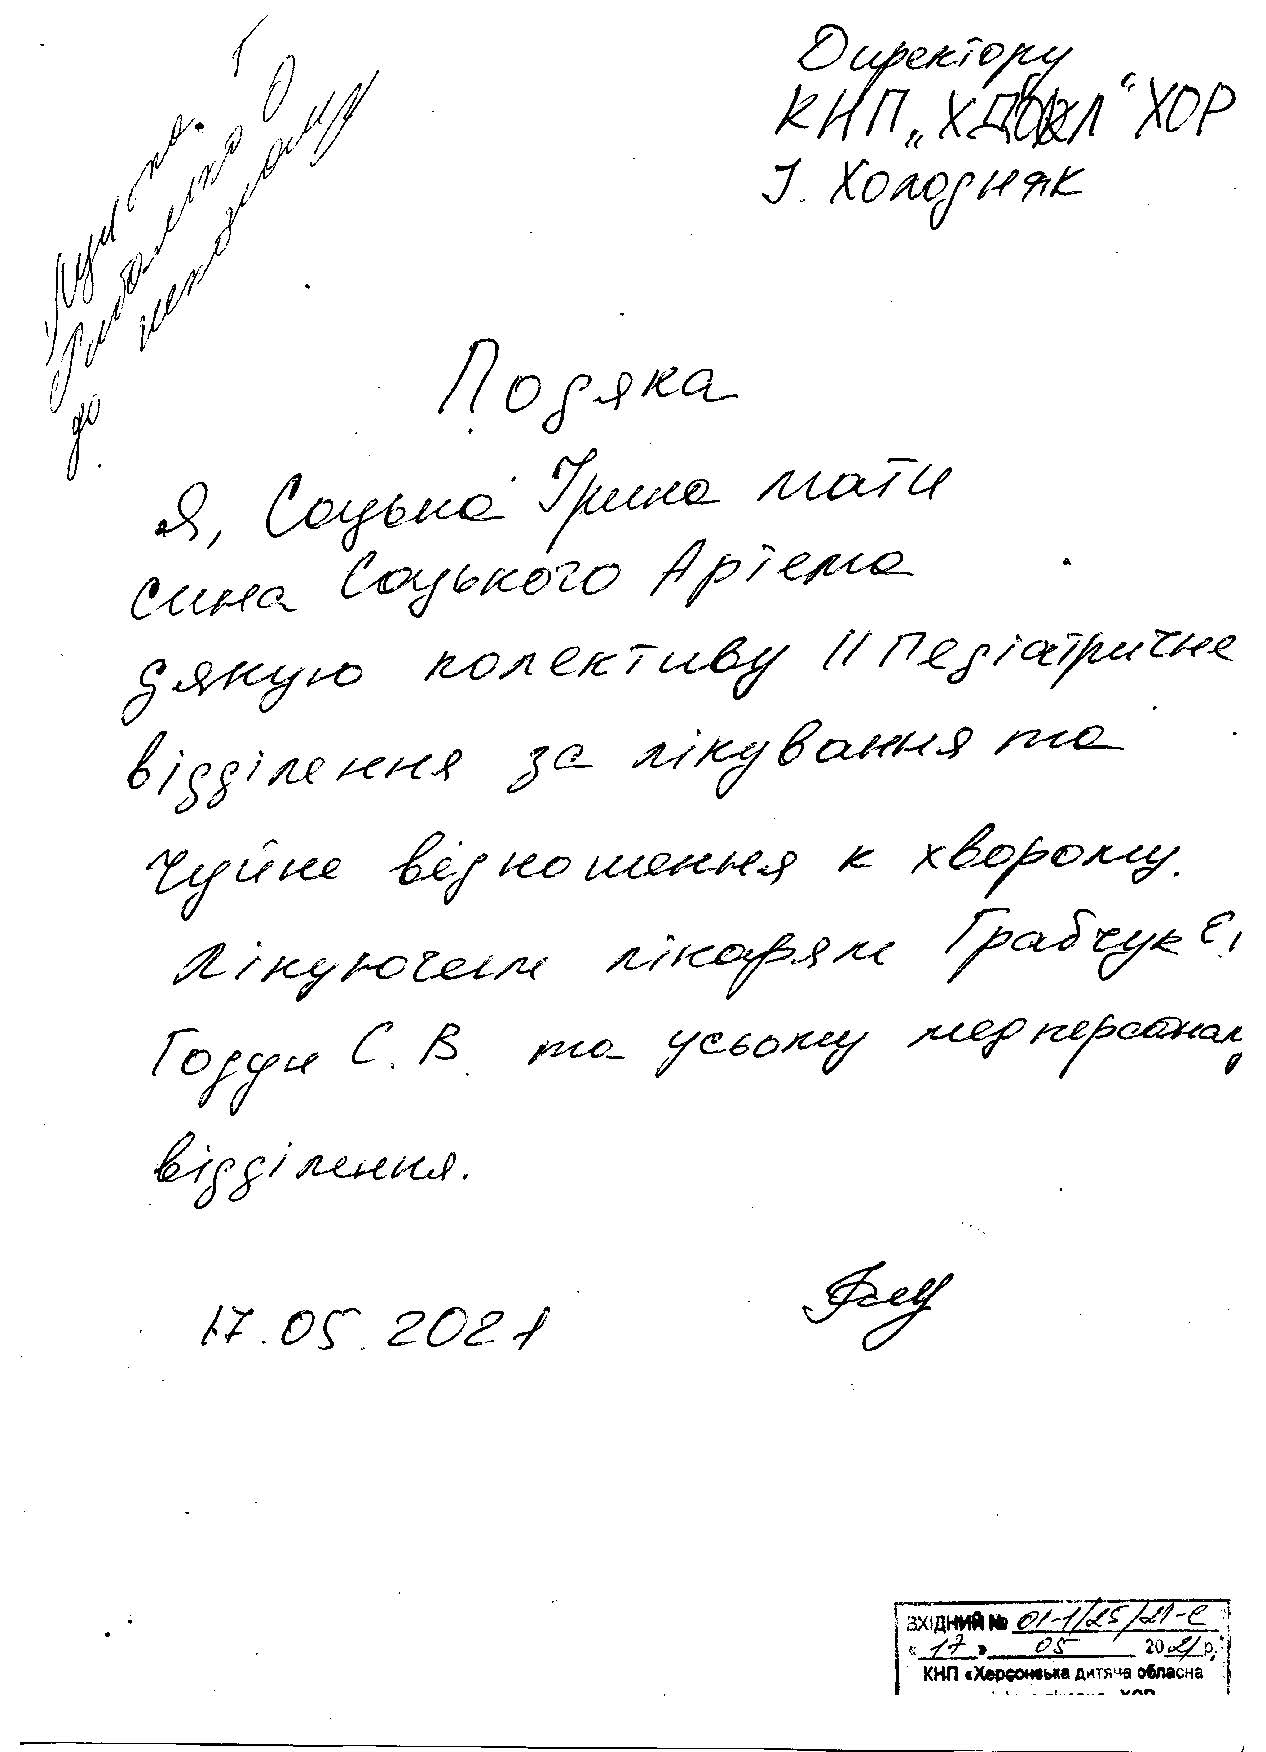 Директору
КНП „ХДОКЛ“ ХОР
І. Холодняк
Подяка
Я, Соцька Ірина мати
сина Соцького Артема
дякую колективу ІІ Педіатричне
відділення за лікування та
чуйне відношення к хворому.
Лікуючем лікарям Грабчук Є,
Гордии С. В. та усьому медперсоналу
відділення.
17.05.2021
ВХІДНИЙ № 01-1/25/21-С
« 17 » 05 2021 р.
КНП «Херсонська дитяча обласна